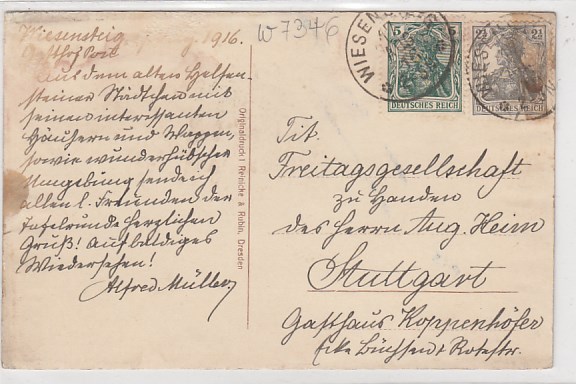 Wiesensteig 1916.
Gasthof Post
W7346
Aus dem alten Helfen-
steiner Städtchen mit
seinen interessanten
Häusern und Wappen,
sowie wunderhübscher
Umgebung sende ich
allen l. Freunden der
Tafelrunde herzlichen
Gruß! Auf baldiges
Wiedersehen!
Alfred Müller
Originaldruck: Reinicke & Rubin, Dresden
WIESENSTEIG
5 5
DEUTSCHES REICH
2½ 2½
DEUTSCHES REICH
Tit.
Freitagsgesellschaft
zu Handen
des Herrn Aug. Heim
Stuttgart
Gasthaus Koppenhöfer
Ecke Büchsen & Rotestr.